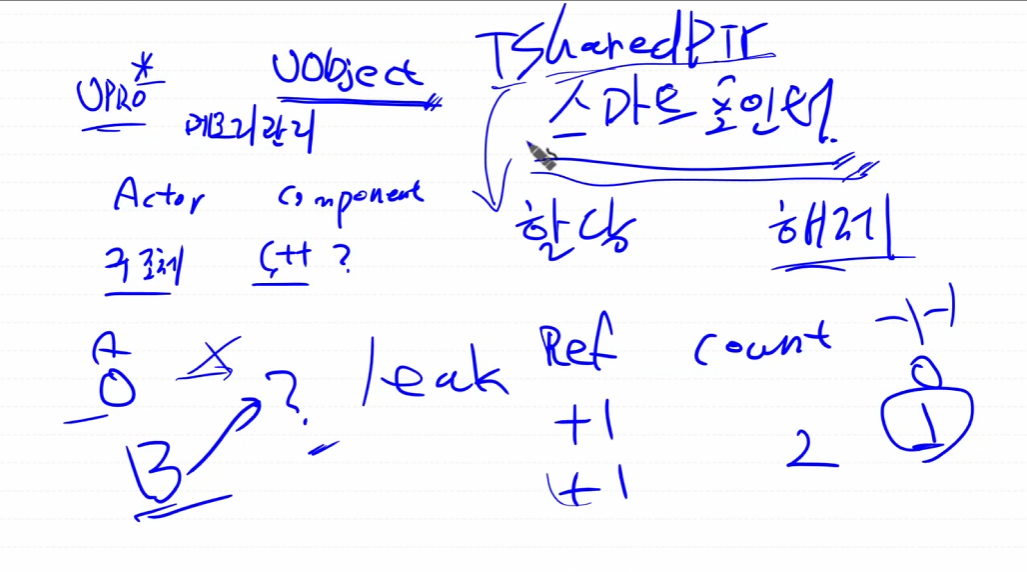 TSharedPtr
UPRO* UObject
스마트 포인터
메모리관리
Actor Component
할당 해제
구조체 C++ ?
-1 -1
A Ref count
O ? leak 0
+1 1
B 2
+1